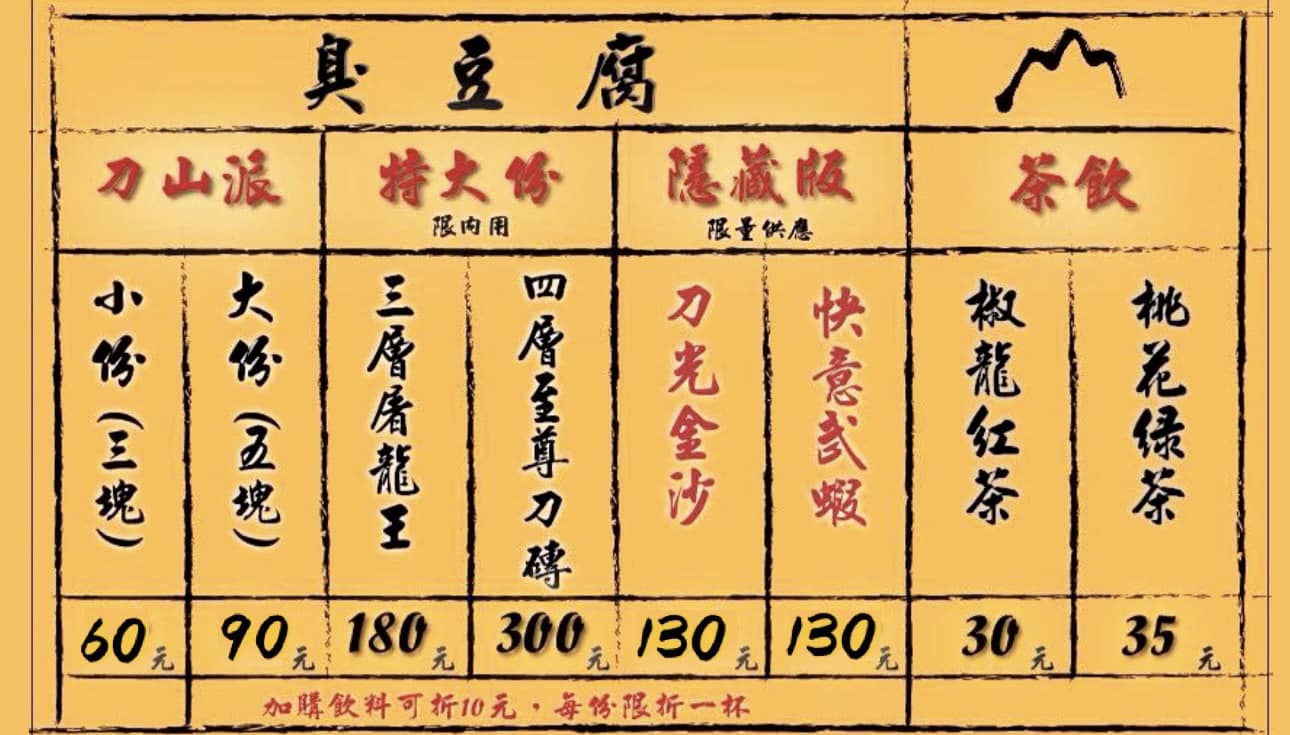 臭豆腐
刀山派
特大份
限內用
隱藏版
限量供應
茶飲
小份(三塊)
大份(五塊)
三層屠龍王
四層至尊刀磚
刀光金沙
快意武蝦
椒龍紅茶
桃花绿茶
60元
90元
180元
300元
130元
130元
30元
35元
加購飲料可折10元，每份限折一杯